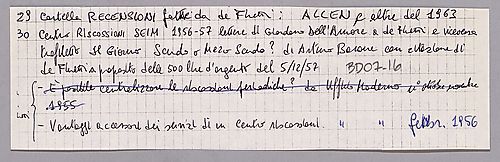 29 Cartella RECENSIONI fatte da de Fhetri: ALLEN e altre del 1963
30 Centro Riscossioni SEIM 1956-57 lettere di Giordano Dell'Amore a de Fhetri e viceversa
trafiletto Il Giorno Scudo o Mezzo Scudo? di Antimo Barone con citazione di
de Fhetri a proposito delle 500 lire d'argento del 5/12/57 BD07-116
- È possibile centralizzare le riscossioni periodiche? da Ufficio Moderno
1955
- Vantaggi accessori dei servizi di un Centro riscossioni. " " febbr. 1956